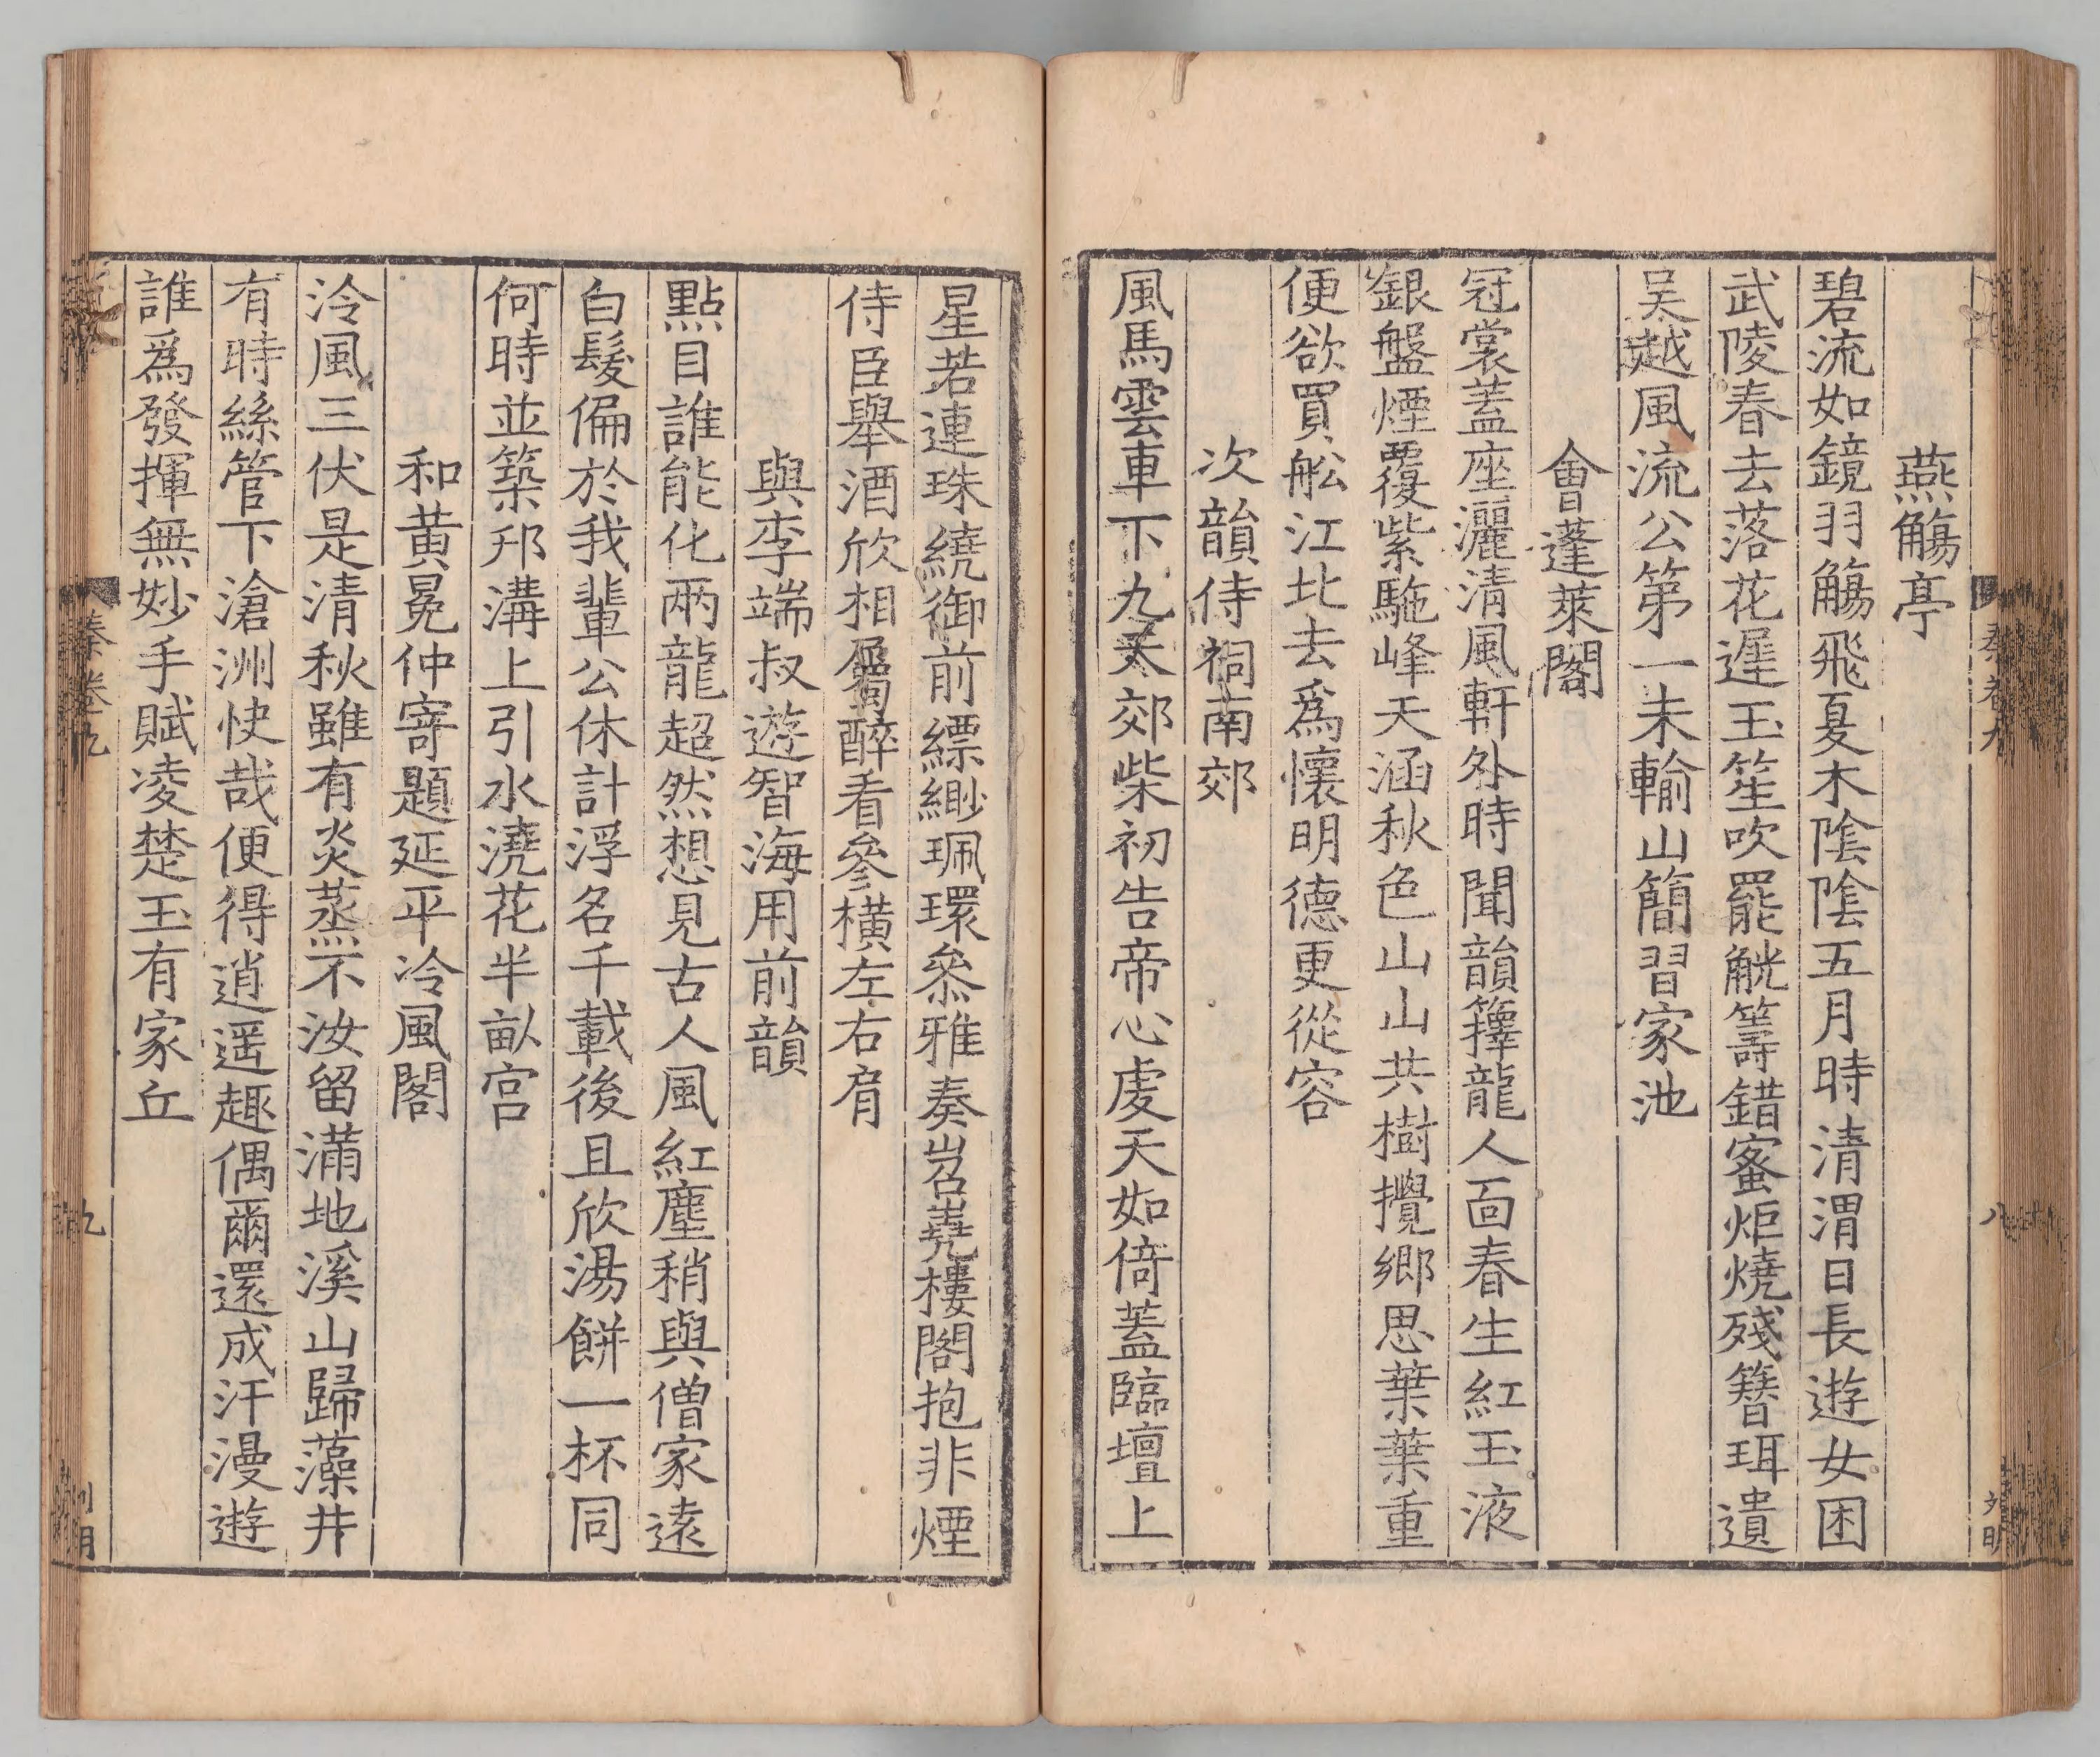 燕觴亭
碧流如鏡羽觴飛夏木陰陰五月時清渭日長遊女困
武陵春去落花遲玉笙吹罷觥籌錯蜜炬燒殘簪珥遺
吴越風流公第一未輸山簡習家池
會蓬萊閣
冠裳蓋座灑清風軒外時聞韻籜龍人面春生紅玉液
銀盤煙覆紫駞峰天涵秋色山山共樹攪鄉思葉葉重
便欲買舩江北去爲懷明德更從容
次韻侍祠南郊
風馬雲車下九天郊柴初告帝心虔天如倚蓋臨壇上
秦卷九
八
星若連珠繞御前縹緲珮環叅雅奏岧嶤樓閣抱非煙
侍臣舉酒欣相屬醉看參橫左右肩
與李端叔遊智海用前韻
點目誰能化兩龍超然想見古人風紅塵稍與僧家遠
白髮偏於我輩公休計浮名千載後且欣湯餅一杯同
何時並築邗溝上引水澆花半畝宫
和黄冕仲寄題延平冷風閣
泠風三伏是清秋雖有炎蒸不汝留滿地溪山歸藻井
有時絲管下滄洲快哉便得逍遥趣偶爾還成汗漫遊
誰爲發揮無妙手賦凌楚玉有家丘
秦卷九
九